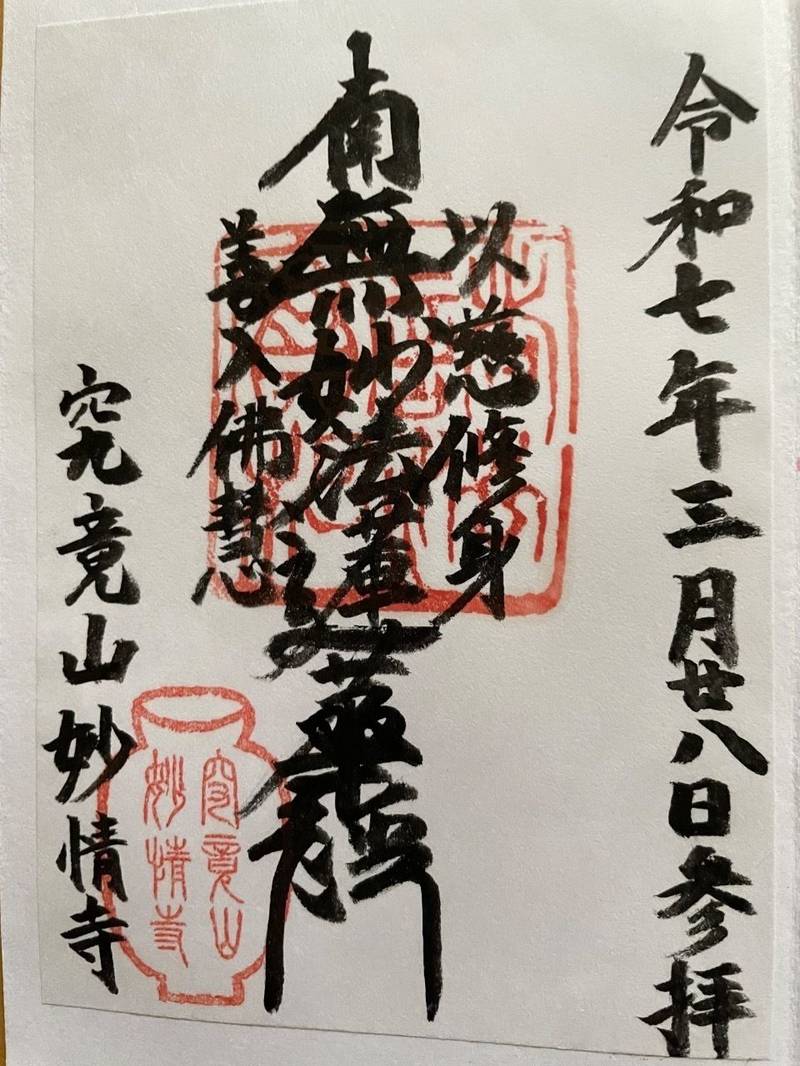 令和七年三月廿八日参拝
以慈修身
南無妙法蓮華経
善入佛慧
究竟山妙情寺
究竟山
妙情寺